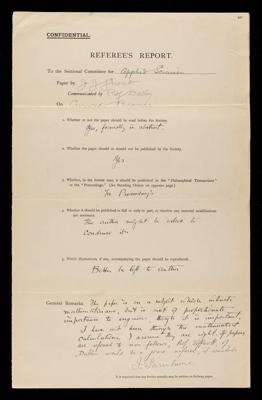 CONFIDENTIAL.
REFEREE'S REPORT.
To the Sectional Committee for Applied
Paper by
Communicated by Prof
On
1. Whether or not the paper should be read before the Society.
Yes, formally in abstract.
2. Whether the paper should or should not be published by the Society.
Yes
3. Whether, in the former case, it should be published in the "Philosophical Transactions"
or the "Proceedings." (See Standing Orders on opposite page.)
In Proceedings
4. Whether it should be published in full or only in part, or receive any material modifications
The author might be asked to
condense it
5. Which illustrations, if any, accompanying the paper should be reproduced.
Better be left to author
General Remarks. The paper is on a subject which interests
mathematicians, but is not of proportionate
importance to engineers though it is important.
I have not been through the mathematical
calculations, I assume they are right, if papers
are referred to two referees, Prof
would be a good referee,
It is requested that any further remarks may be written on the following pages.